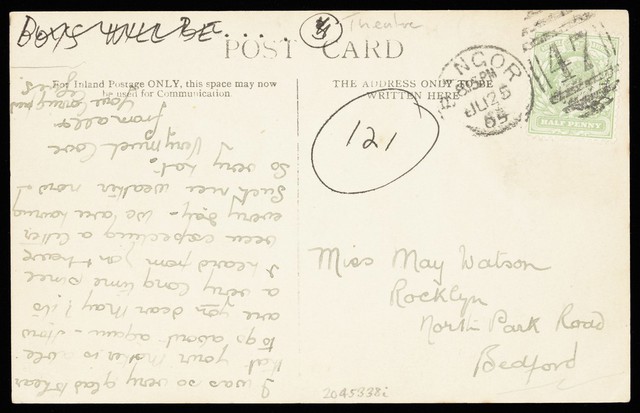 BOYS WILL BE....
4
Theatre
POST CARD
For Inland Postage ONLY, this space may now
be used for Communication.
THE ADDRESS ONLY TO BE
WRITTEN HERE
NGOR
PM
JU 25
05
47
HALF PENNY
121
I was so very glad to hear
that your Mother is able
to go about again - How
are you dear May? its
a very long time since
I heard from you & have
been expecting a letter
every day - We are having
such nice weather now &
so very hot.
Very much love
from all
Your loving
Miss May Watson
Rocklyn
North Park Road
Bedford
2045338i